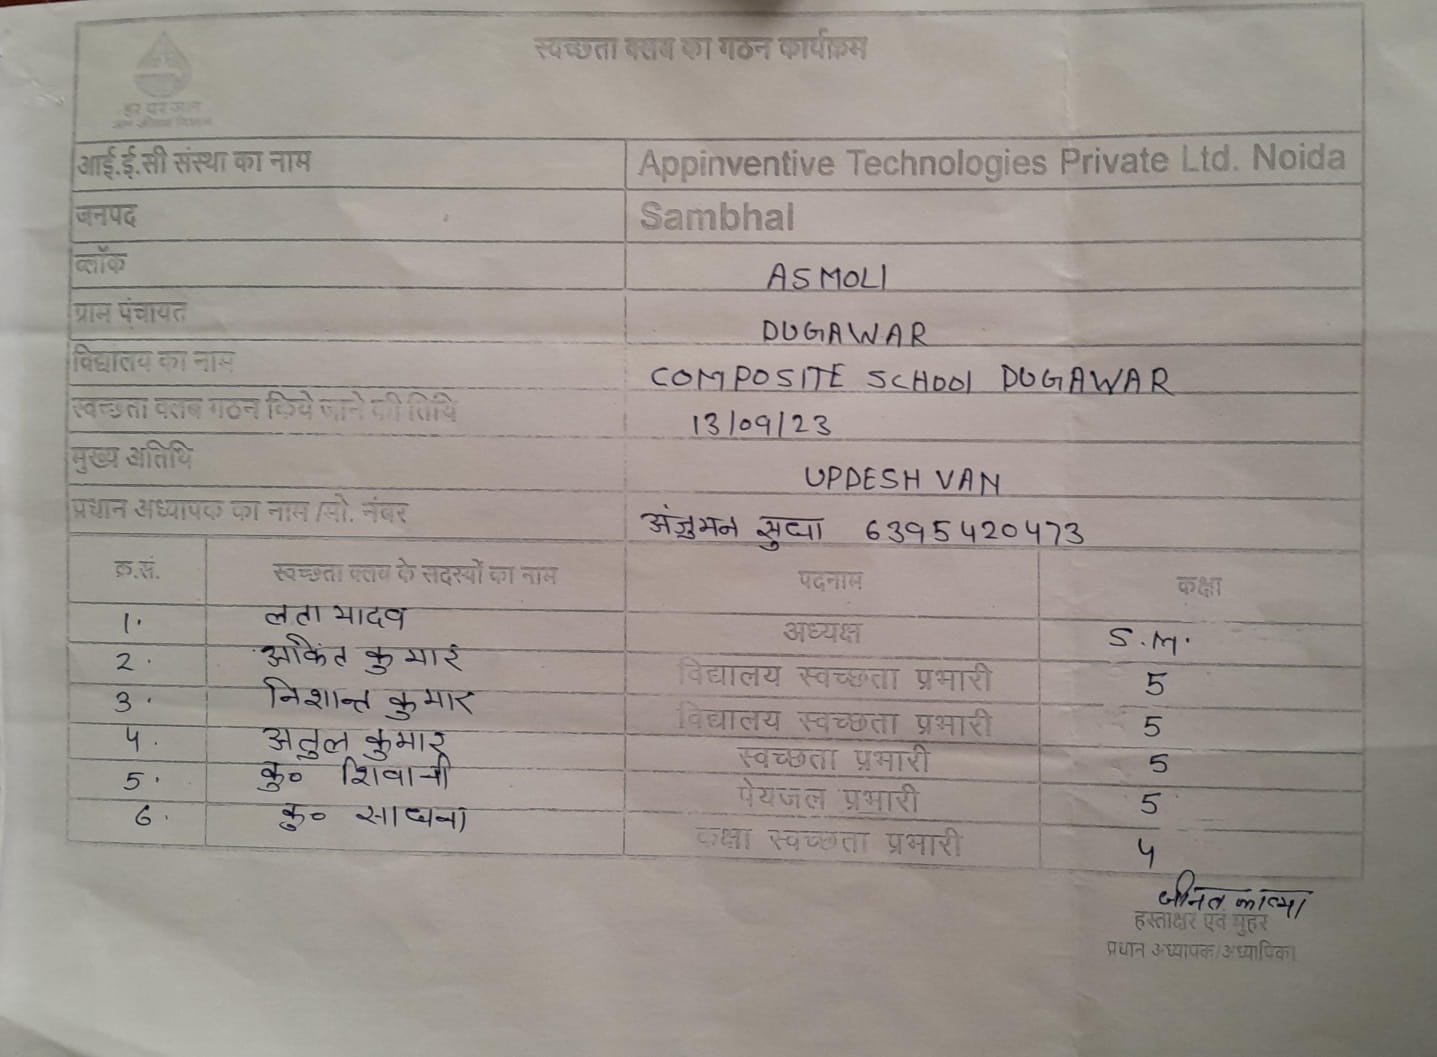 स्वच्छता क्लब का गठन कार्यक्रम
हर घर जल
जल जीवन मिशन
आई.ई.सी संस्था का नाम Appinventive Technologies Private Ltd. Noida
जनपद Sambhal
ब्लॉक ASMOLI
ग्राम पंचायत DUGAWAR
विद्यालय का नाम COMPOSITE SCHOOL DUGAWAR
स्वच्छता क्लब गठन किये जाने की तिथि 13/09/23
मुख्य अतिथि UPDESH VAN
प्रधान अध्यापक का नाम /मो. नंबर अंजुमन सुधा 6395420473
क्र.सं. स्वच्छता क्लब के सदस्यों का नाम पदनाम कक्षा
1. लता यादव अध्यक्ष S.M.
2. अंकित कुमार विद्यालय स्वच्छता प्रभारी 5
3. निशान्त कुमार विद्यालय स्वच्छता प्रभारी 5
4. अतुल कुमार स्वच्छता प्रभारी 5
5. कु० शिवानी पेयजल प्रभारी 5
6. कु० साधना कक्षा स्वच्छता प्रभारी 4
हस्ताक्षर एवं मुहर
प्रधान अध्यापक/अध्यापिका